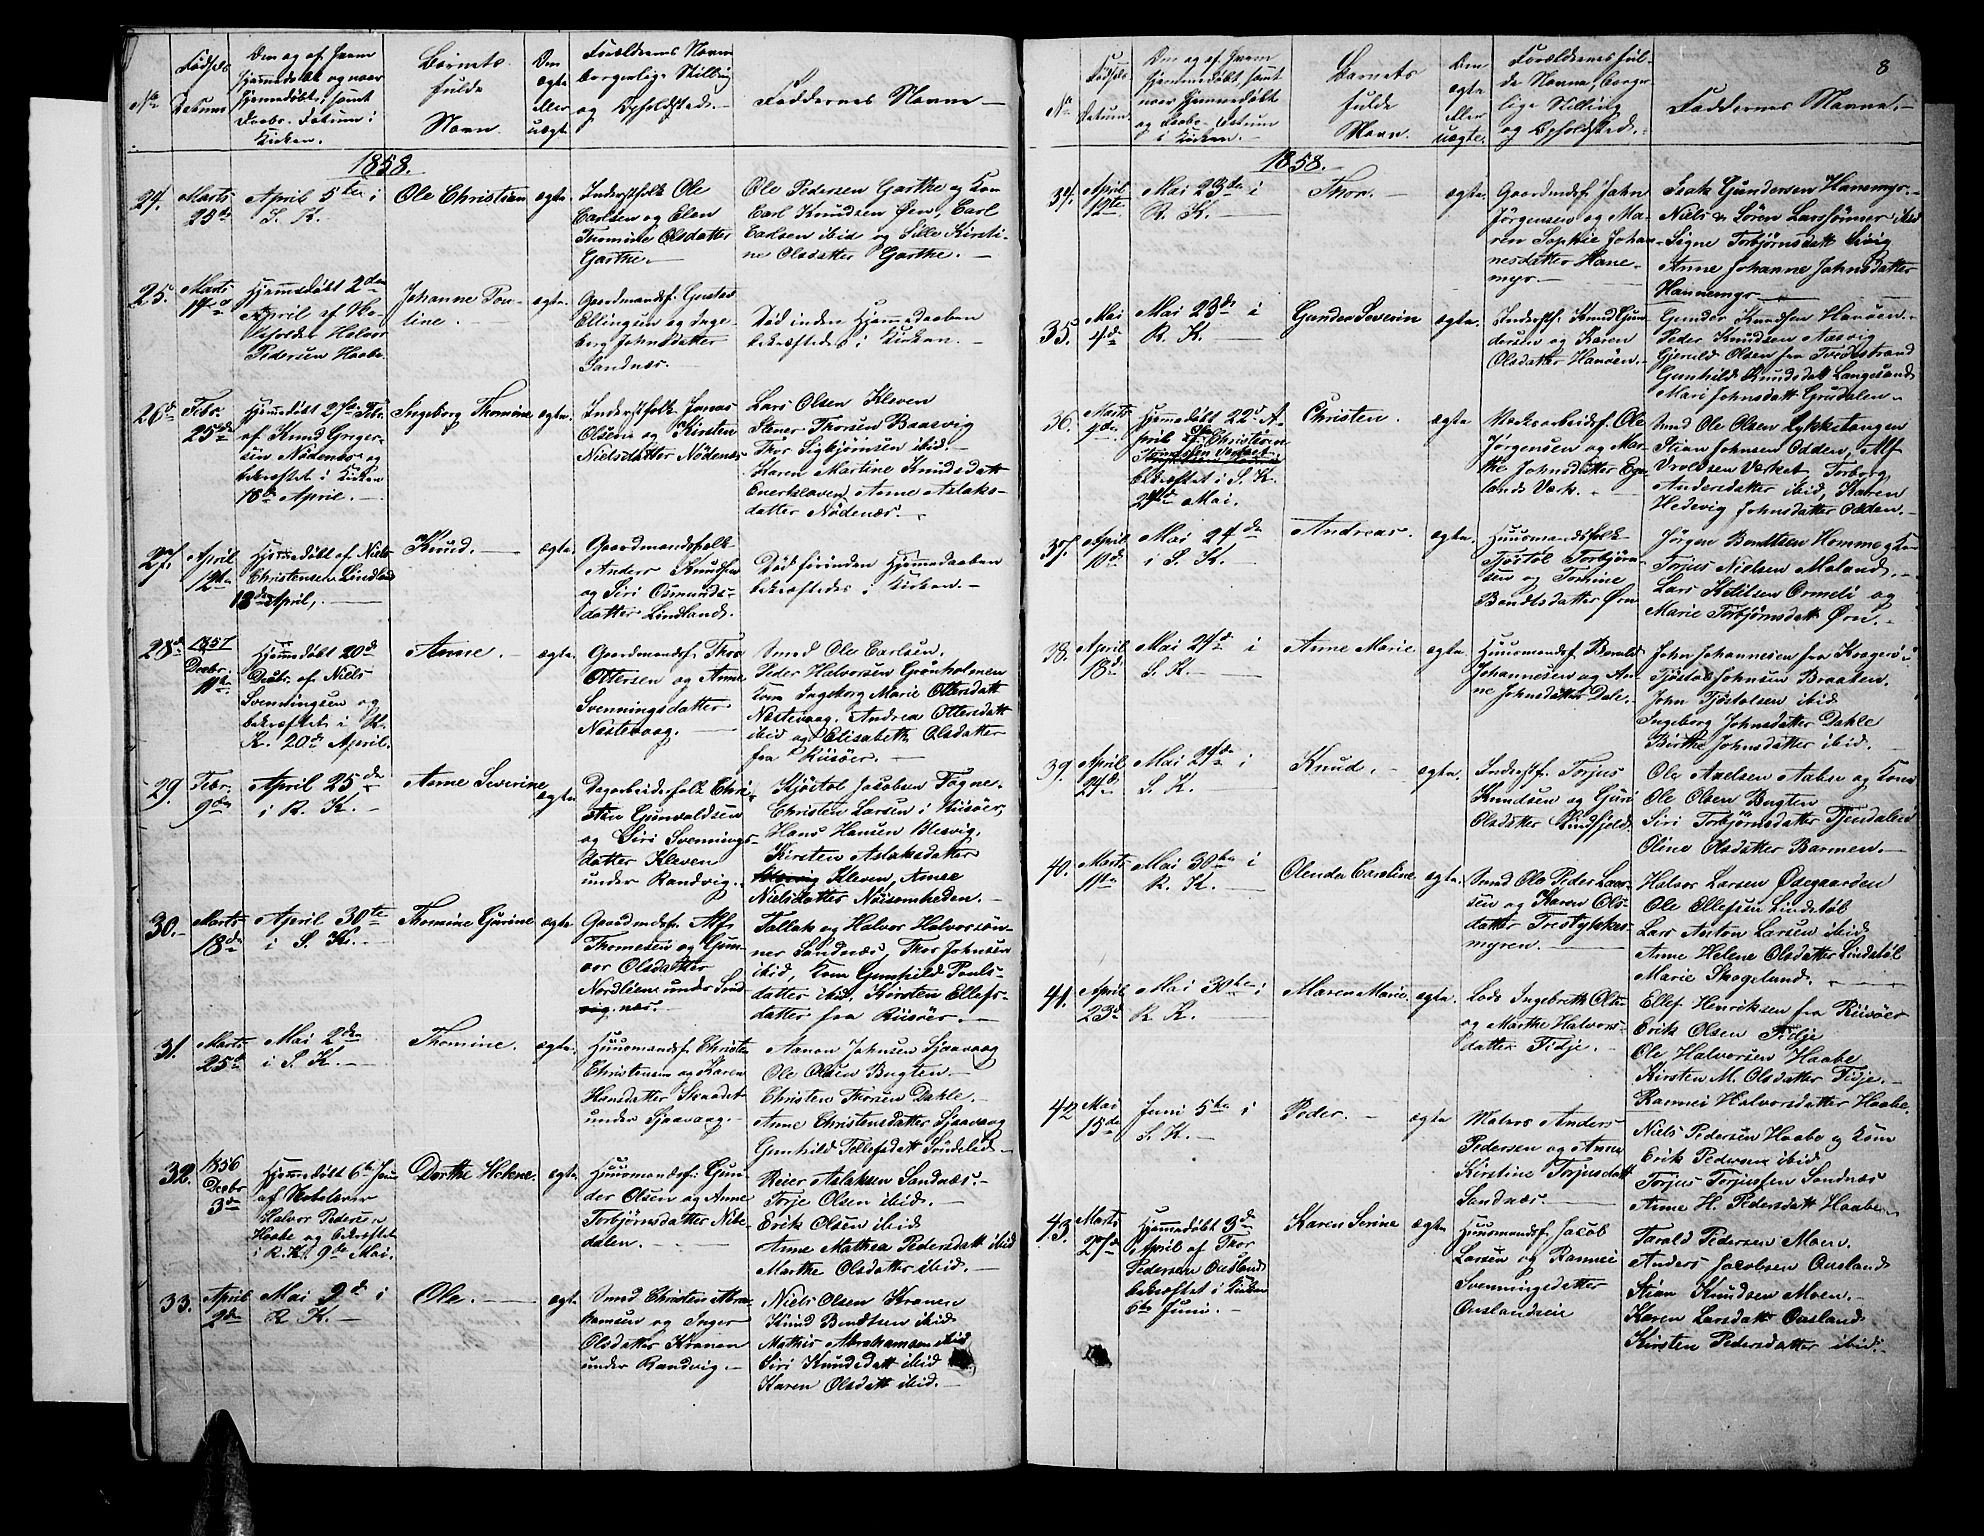 No.
Fødsels
Datum
Den og af hvem
hjemmedøbt og naar
hjemmedøbt, samt
Daabs Datum i
Kirken.
Barnets
fulde
Navn.
Om
ægte
eller
uægte
Forældrenes Navn
borgerlige Stilling
og Opholdsted.
Faddernes Navne
1858.
24.
Marts
23de
April 5te i
S. K.
Ole Christian
ægte
Inderstfolk Ole
Carlsen og Elen
Thomine Olsdatter
Garthe
Ole Pedersen Garthe og Kone
Carl Knudsen Øen, Carl
Carlsen ibid og Sille Kirsti-
ne Olsdatter Garthe.
25.
Marts
Hjemmedøbt 2den
April af Kirke-
Halvor
Pedersen Haabe.
Johanne Pou-
line.
ægte
Gaardmandsf. Gustav
Ellingsen og Inge-
borg Johnsdatter
Sandnæs.
Død inden Hjemmedaaben
bekræftedes i Kirken.
26de
Febr.
25de
Hjemmedøbt 27de Fbr.
af Knud Greger-
sen Nødenæs og
bekræftet i Kirken
18de April.
Ingeborg Thomine
ægte
Inderstfolk Jonas
Olsen og Kirsten
Nielsdatter Nødenæs
Lars Olsen Kleven
Stener Thorsen Baasvig
Thor Sigbjørnsen ibid.
Karen Martine Knudsdatt
Enerkleven, Anne Aslaks-
datter Nødenæs.
27.
April
12te
Hjemmedøbt af Niels
Christensen Lindland
18de April,
Knud.
ægte
Gaardmandsfolk
Anders Knudsen
og Siri Osmunds-
datter Lindland.
Død forinden Hjemmedaaben
bekræftedes i Kirken
28de
1857
Decbr.
11te
Hjemmedøbt 20de
Decbr. af Niels
Svenningsen og
bekræftet i R.
K. 20de April.
Anne.
ægte
Gaardmandsf. Thor
Ottersen og Anne
Svenningsdatter
Nestevaag.
Smed Ole Carlsen.
Peder Halvorsen Grønholmen
Kone Ingeborg Marie Ottersdatt
Nestevaag. Andrea Ottersdatt
ibid og Elisabeth Olsdatter
fra Risøer.
29.
Febr.
9de
April 25de
i R. K.
Anne Severine
ægte
Dagarbeiderfolk Chri-
sten Gunvaldsen
og Siri Svennings-
datter Kleven
under Randvig.
Kjøstol Jacobsen Fogne
Christen Larsen i Risøer,
Hans Hansen Blesvig.
Kirsten Aslaksdatter
Kleven, Anne
Nielsdatter Nøisomheden.
30.
Marts
18de
April 30te
i S. K.
Thomine Gurine
ægte
Gaardmdsf. Alf
Thomesen og Gun-
vor Olsdatter
Nordlien under Sand-
næs.
Tallak og Halvor Halvorsøn-
ner Sandnæs, Thor Johnsen
ibid, Kone Gunhild Pouls-
datter ibid. Kirsten Ellefs-
datter fra Risøer.
31.
Marts
25de
Mai 2den
i S. K.
Thomine.
ægte.
Huusmandsf. Christen
Christensen og Karen
Hansdatter Skaadet
under Sjaavaag.
Aanon Johnsen Sjaavaag
Ole Olsen Bugten
Christen Thorsen Dahle.
Anne Christensdatter Sjaavaag
Gunhild Tellefsdatt Søndeled
32.
1856
Decbr
3de
Hjemmedøbt 6te Jan
af
Halvor Pedersen
Haabe og bekræftet
i R. K. 9de Mai.
Dorthe Helene.
ægte
Huusmandsf. Gun-
der Olsen og Anne
Torbjørnsdatter Nibe-
dalen.
Reier Aslaksen Sandnæs.
Torje Olsen ibid.
Erik Olsen ibid
Anne Mathea Pedersdatt ibid
Marthe Olsdatter ibid.
33.
April
2de
Mai 9de i
R. K.
Ole.
ægte
Smed Christen Abra-
hamsen og Inger
Olsdatter Kranen
under Randvig.
Niels Olsen Kranen
Knud Bendtsen ibid
Mathis Abrahamsen ibid
Siri Knudsdatt ibid
Karen Olsdatt ibid.
8
No.
Fødsels
Datum.
Den og af hvem
hjemmedøbt, samt
naar hjemmedøbt
og Daabs-Datum
i Kirken.
Barnets
fulde
Navn.
Om
ægte
eller
uægte.
Forældrenes ful-
de Navne, borger-
lige Stilling
og Opholdsted.
Faddernes Navne.
1858.
34.
April
12te
Mai 23de i
R. K.
Thor.
ægte.
Gaardmdsf. John
Jørgensen og Ma-
ren Sophie Johan-
nesdatter Hane-
myr.
Isak Gundersen Hanemyr.
Niels & Søren Larssønner ibid
Signe Torbjørnsdatt
Anne Johanne Johnsdatter
Hannemyr
35.
Mai
4de
Mai 23de i
R. K.
Gunder Severin
ægte.
Inderstf. Knud Gun-
dersen og Karen
Olsdatter Hanøen.
Gunder Knudsen Hanøen.
Peder Knudsen Næsvig
Gjeruld Olsen fra Tvedestrand
Gunhild Knudsdatt Langesand
Mari Johnsdatt Grødalen
36.
Marts
9de
Hjemmedøbt 22de A-
pril af Ole Christian
bekræftet i S. K.
24de Mai.
Christen.
ægte
Værksarbeidsf. Ole
Jørgensen og Mar-
the Johnsdatter Ege-
lands Værk.
Smed Ole Olsen Lykkestangen
Stian Johnsen Odden, Alf
Vroldsen Værket, Torborg
Andersdatter ibid, Karen
Hedevig Johnsdatter Odden.
37.
April
10de
Mai 24de
i S. K.
Andreas.
ægte.
Huusmandsfolk
Tjøstol Torbjørn-
sen og Tomine
Bendtsdatter Ørn
Jørgen Bendtsen Homme & Kone
Torjus Nielsen Moland.
Lars Ketilsen Ormeli og
Marie Torbjørnsdatt Ørn.
38.
April
18de
Mai 24de i
S. K.
Anne Marie
ægte.
Huusmandsf. Berulf
Johannesen og An-
ne Johnsdatter Dale.
John Johannesen fra Kragerø
Tjøstol Johnsen Braaten.
John Tjøstolsen ibid
Ingeborg Johnsdatter Dahle
Birthe Johnsdatter ibid.
39.
April
24de
Mai 24de i
S. K.
Knud.
ægte.
Inderstf. Torjus
Knudsen og Guri
Olsdatter Lindfjeld.
Ole Axelsen Aabøe og Kone
Ole Olsen Bugten
Siri Torbjørnsdatter Tjendalen
Oline Olsdatter Barmen.
40.
Marts
11te
Mai 30te i
R. K.
Olende Caroline
ægte.
Smed Ole Peder Laur-
sen og Karen Ols-
datter Trestykkes-
myren.
Halvor Larsen Ødegaarden
Ole Ellefsen Lindstøl
Lars Anton Larsen ibid
Anne Helene Olsdatter Lindstøl
Marie Skogeland.
41.
April
23de
Mai 30te i
R. K.
Maren Marie
ægte.
Lods Ingebreth Olsen
og Marthe Halvors-
datter Fidje.
Ellef Henriksen fra Risøer
Erik Olsen Fidje
Ole Halvorsen Haabe
Kirsten M. Olsdatter Fidje.
Ramnei Halvorsdatter Haabe.
42
Mai
15de
Juni 5te i
S. K.
Peder.
ægte
Matros Anders
Pedersen og Anne
Kirstine Torjusdatt
Sandnæs.
Niels Pedersen Haabe og Kone
Erik Pedersen ibid.
Torjus Torjussen Sandnæs
Anne H. Pedersdatt Haabe
43.
Marts
27de
Hjemmedøbt 3de
April af Thor
Pedersen Ousland
bekræftet i Kirken
6te Juni.
Karen Serine
ægte
Huusmandsf. Jacob
Larsen og Ramnei
Svenningsdatter
Ouslandseie
Tarald Pedersen Moen.
Anders Jacobsen Ousland
Stian Knudsen Moen.
Karen Larsdatt Ousland
Kirsten Pedersdatter ibid.